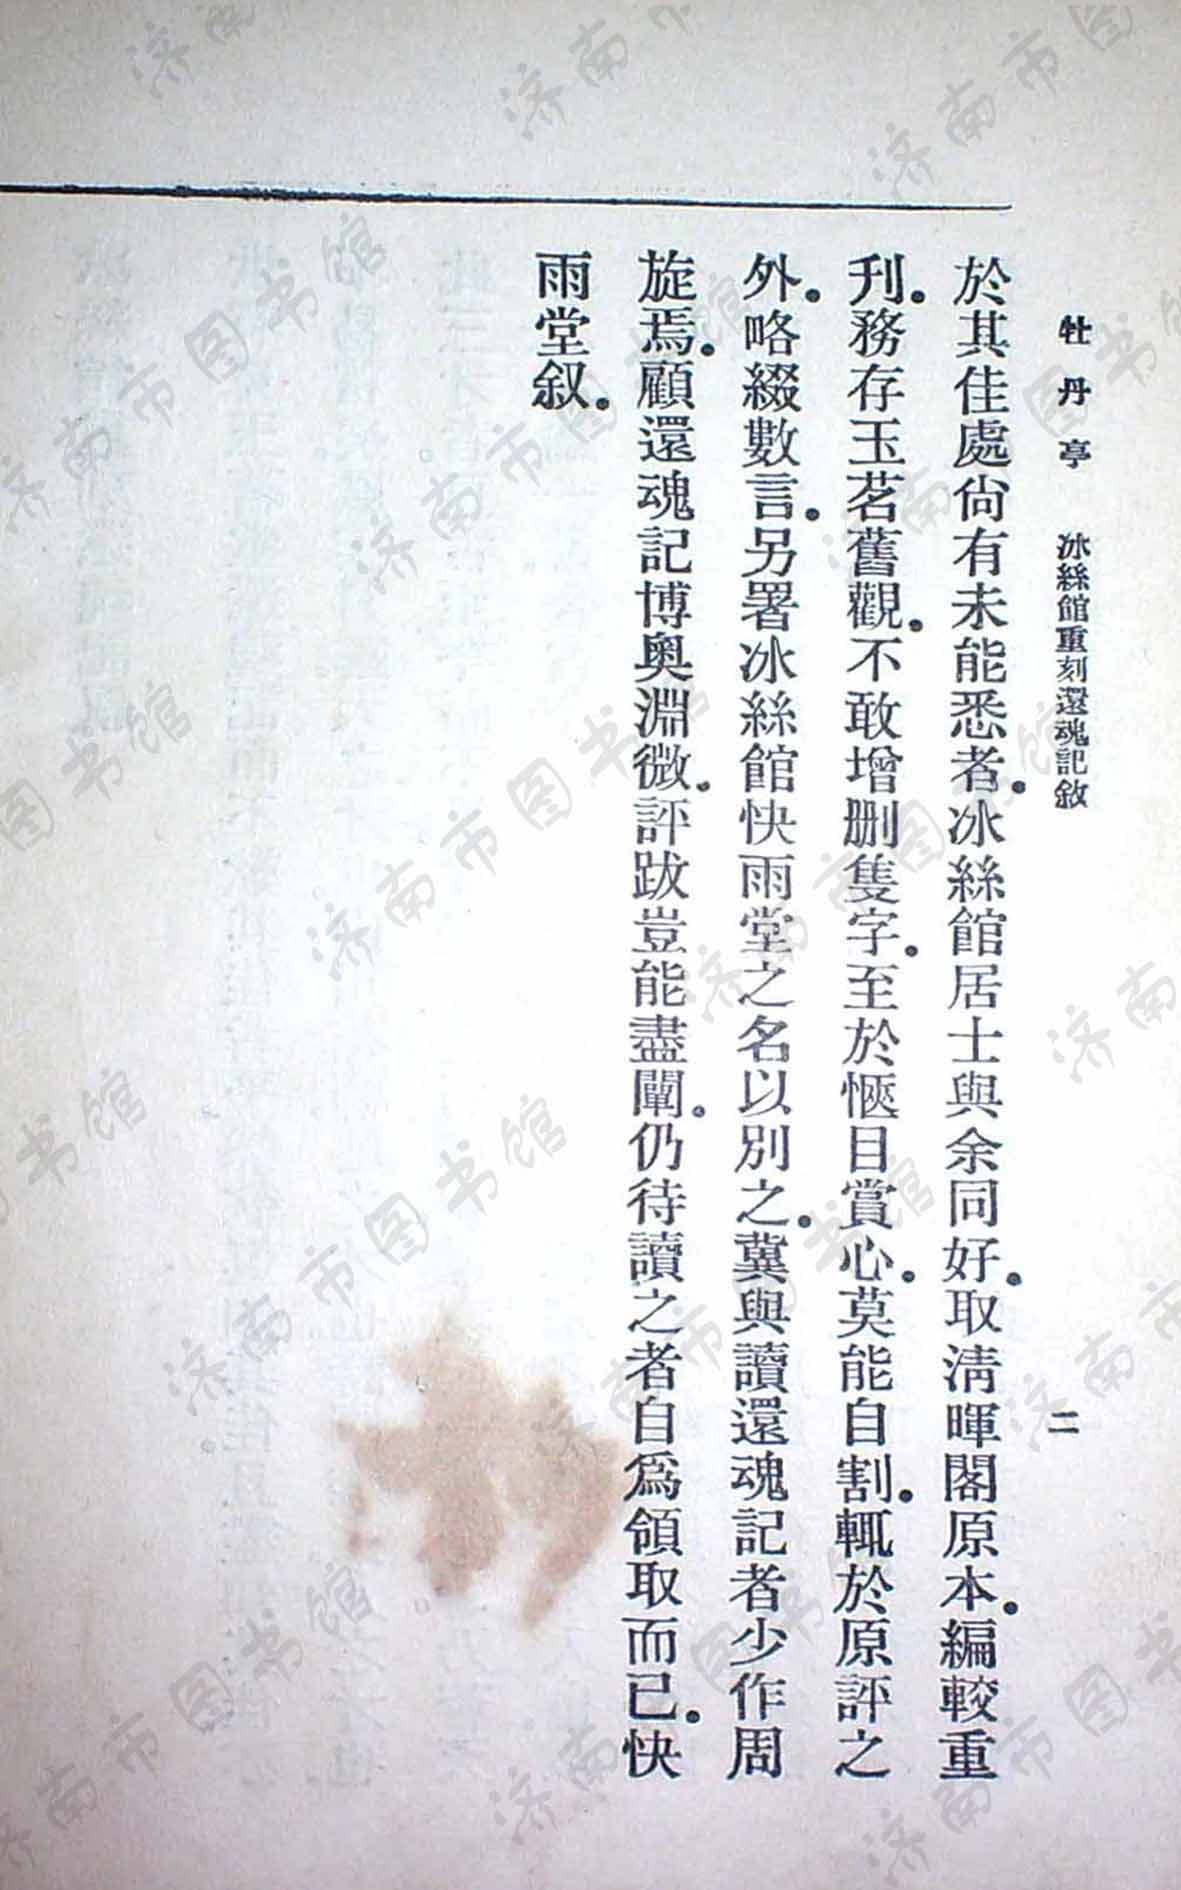 牡丹亭 冰絲館重刻還魂記敘 二
於其佳處尙有未能悉者。冰絲館居士與余同好。取淸暉閣原本。編較重
刋。務存玉茗舊觀。不敢增删隻字。至於愜目賞心。莫能自割。輒於原評之
外。略綴數言。另署冰絲館快雨堂之名以別之。冀與讀還魂記者少作周
旋焉。顧還魂記博奧淵微。評跋豈能盡闡。仍待讀之者自爲領取而已。快
雨堂叙。
济南市图书馆